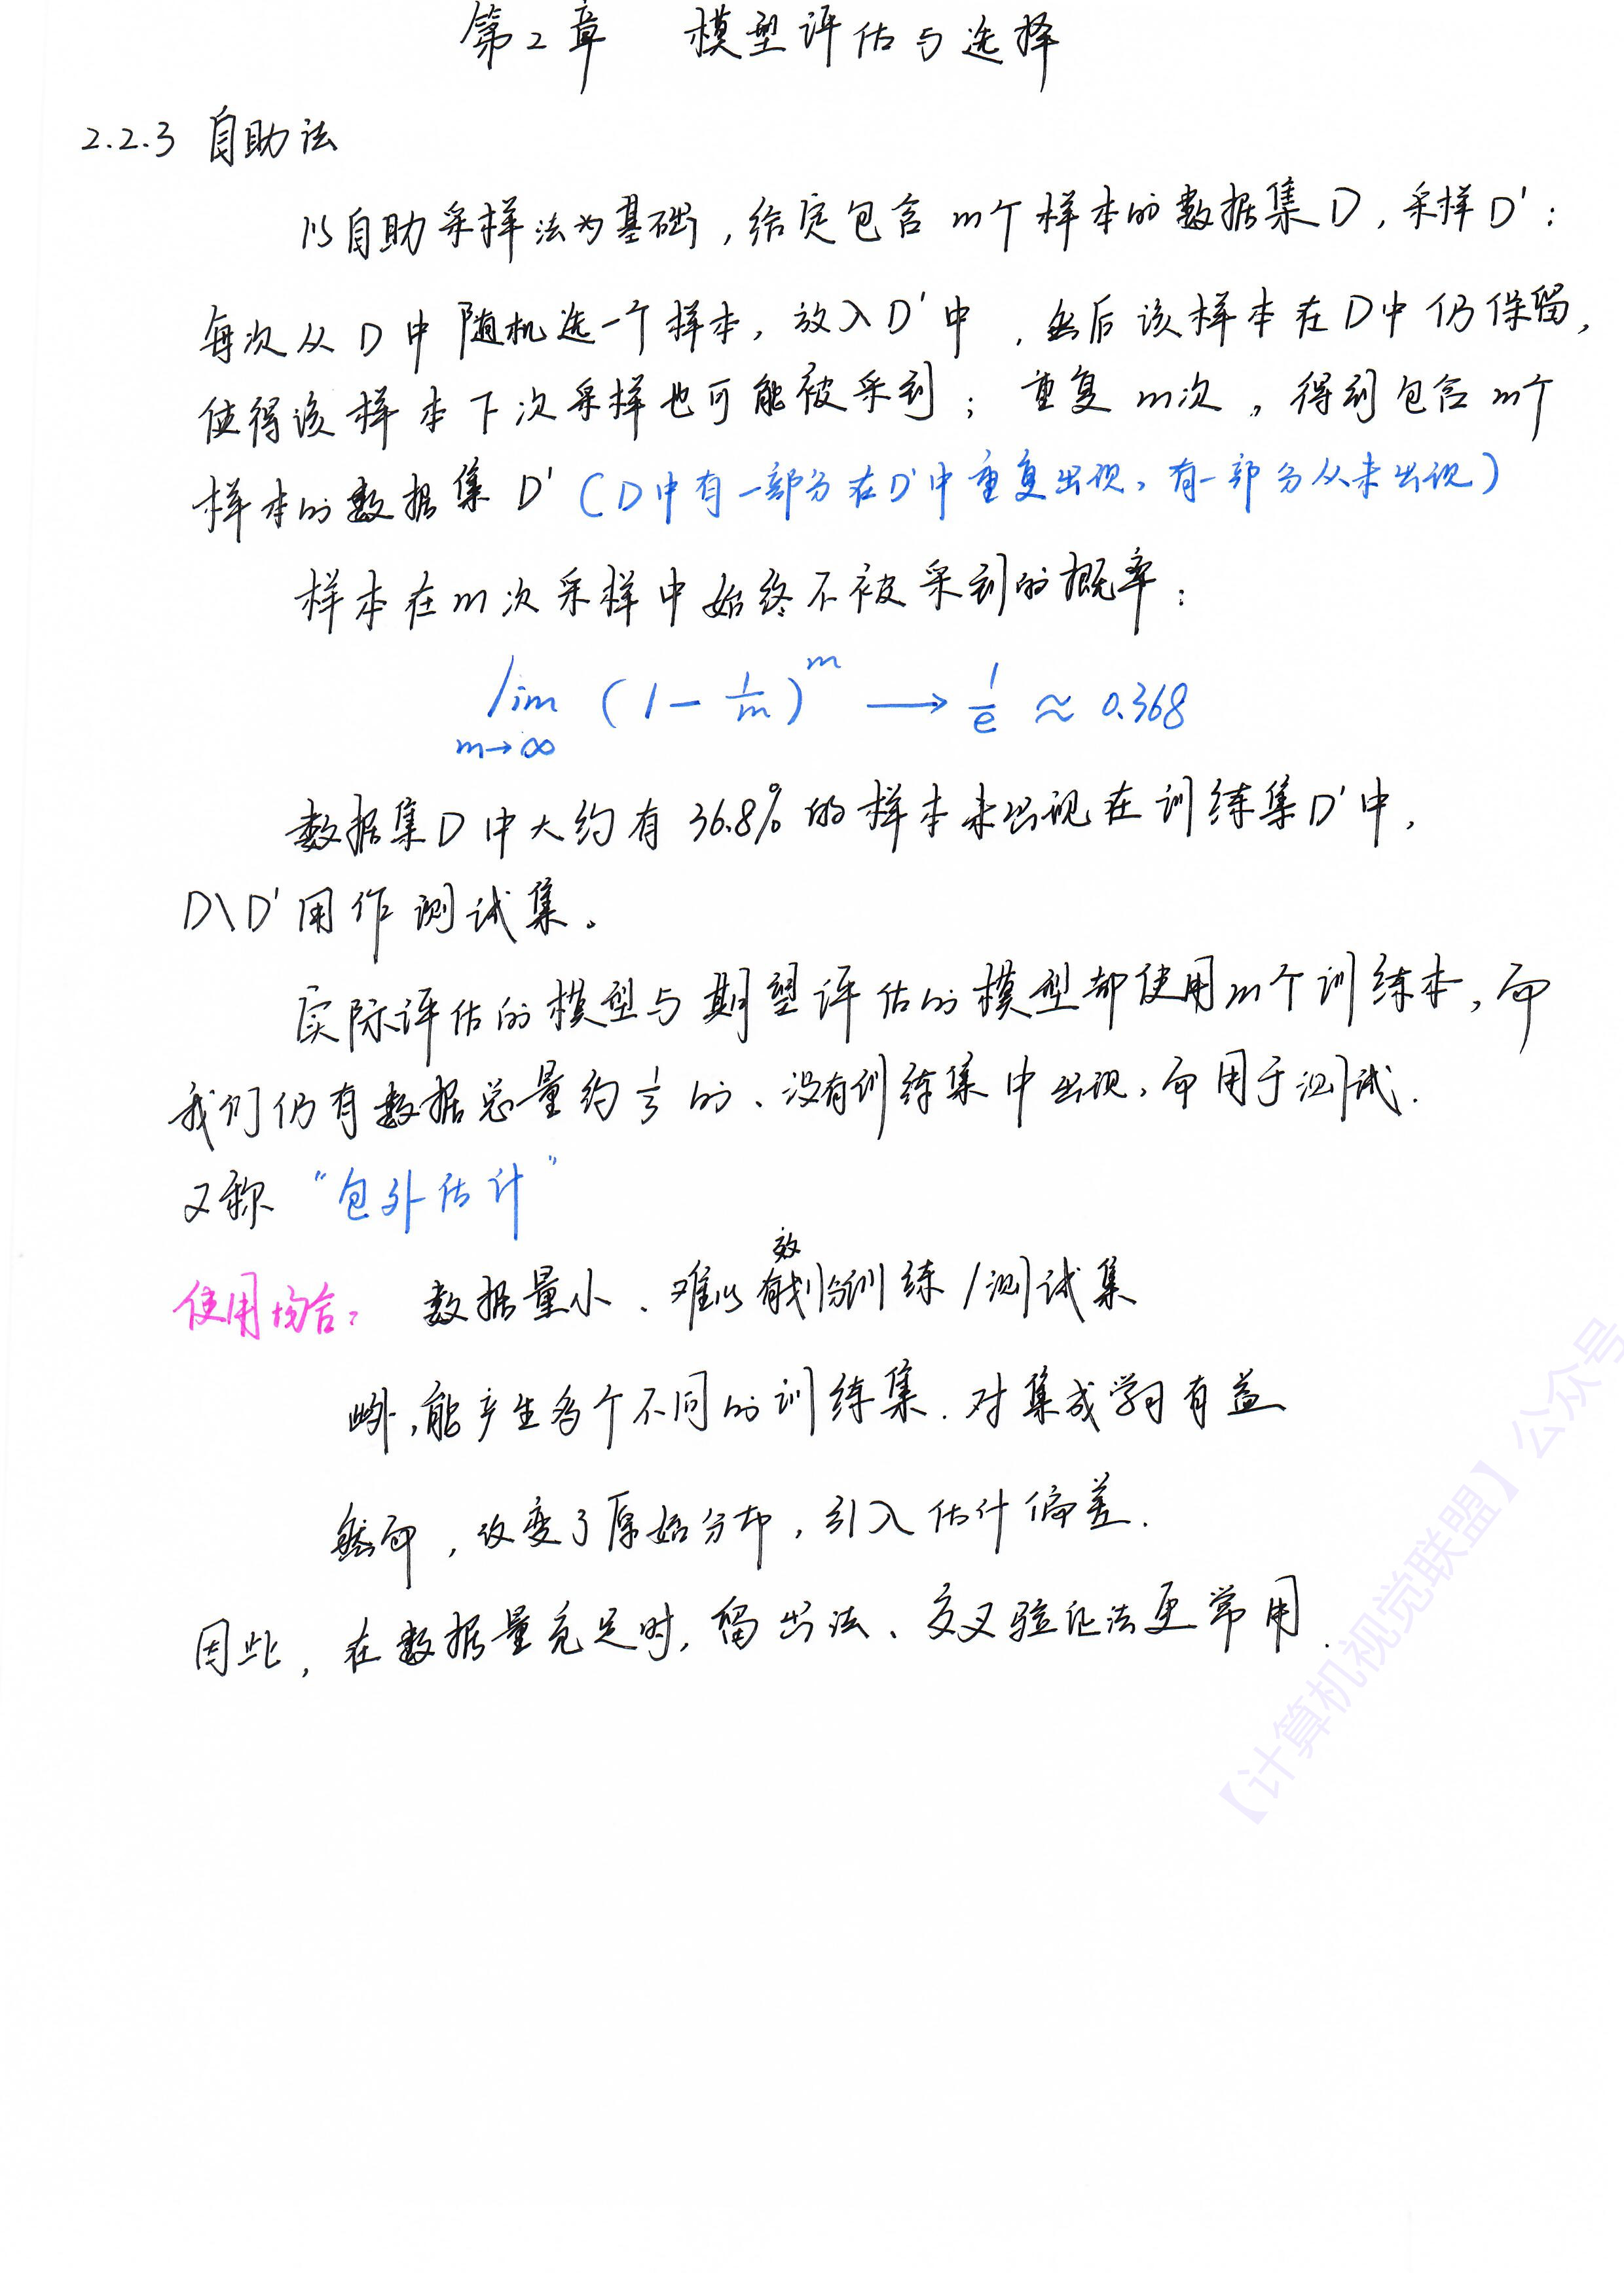 第2章 模型评估与选择
2.2.3 自助法
以自助采样法为基础，给定包含m个样本的数据集D，采样D'：
每次从D中随机选一个样本，放入D'中，然后该样本在D中仍保留，
使得该样本下次采样也可能被采到；重复m次，得到包含m个
样本的数据集D'（D中有一部分在D'中重复出现，有一部分从未出现）
样本在m次采样中始终不被采到的概率：
lim (1 - 1/m)^m → 1/e ≈ 0.368
m→∞
数据集D中大约有36.8%的样本未出现在训练集D'中，
D\D'用作测试集。
实际评估的模型与期望评估的模型都使用m个训练本，而
我们仍有数据总量约1/3的、没有训练集中出现，而用于测试.
又称“包外估计”
使用场合：数据量小、难以有效划分训练/测试集
此外，能产生多个不同的训练集.对集成学习有益
然而，改变了原始分布，引入估计偏差.
因此，在数据量充足时，留出法、交叉验证法更常用.
【计算机视觉联盟】公众号